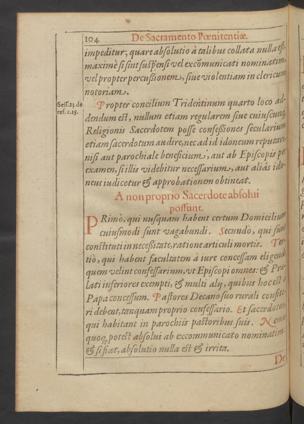 104 De Sacramento Pœnitentiæ.
impeditur, quare absolutio à talibus collata nulla est
maximè si sint suspensi vel excõmunicati nominatim
vel propter percussionem, siue violentiam in clericum
notoriam.
Sess. 23. de
ref. c. 15.
Propter concilium Tridentinum quarto loco ad-
dendum est, nullum etiam regularem siue cuiuscunq;
Religionis Sacerdotem posse confessiones secularium
etiam sacerdotum audire, nec ad id idoneum reputari
nisi aut parochiale beneficium, aut ab Episcopis per
examen, si illis videbitur necessarium, aut aliàs ido-
neus iudicetur & approbationem obtineat.
A non proprio Sacerdote absolui
possunt.
PRimò, qui nusquam habent certum Domicilium
cuiusmodi sunt vagabundi. Secundo, qui sunt
constituti in necessitate, ratione articuli mortis. Ter-
tiò, qui habent facultatem à iure concessam eligendi
quem velint confessarium, vt Episcopi omnes & Præ-
lati inferiores exempti, & multi alij, quibus hoc est à
Papa concessum. Pastores Decano suo rurali confite-
ri debent, tanquam proprio confessario. Et sacerdotes
qui habitant in parochiis pastoribus suis. Nemo
quoq; potest absolui ab excommunicato nominatim
& si fiat, absolutio nulla est & irrita.
De